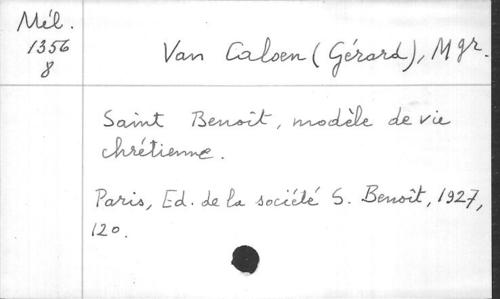 Mél.
1356
8
Van Caloen (Gérard), Mgr.
Saint Benoit, modèle de vie
chrétienne.
Paris, Ed. de la société S. Benoît, 1927,
120.